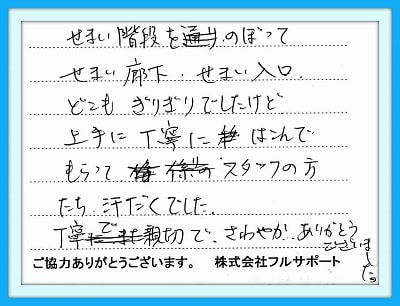 せまい階段を のぼって
せまい廊下、せまい入口
どこも ぎりぎりでしたけど
上手に 丁寧に はこんで
もらって スタッフの方
たち 汗だくでした。
丁寧で 親切で、さわやか、ありがとう
ございました
ご協力ありがとうございます。 株式会社フルサポート